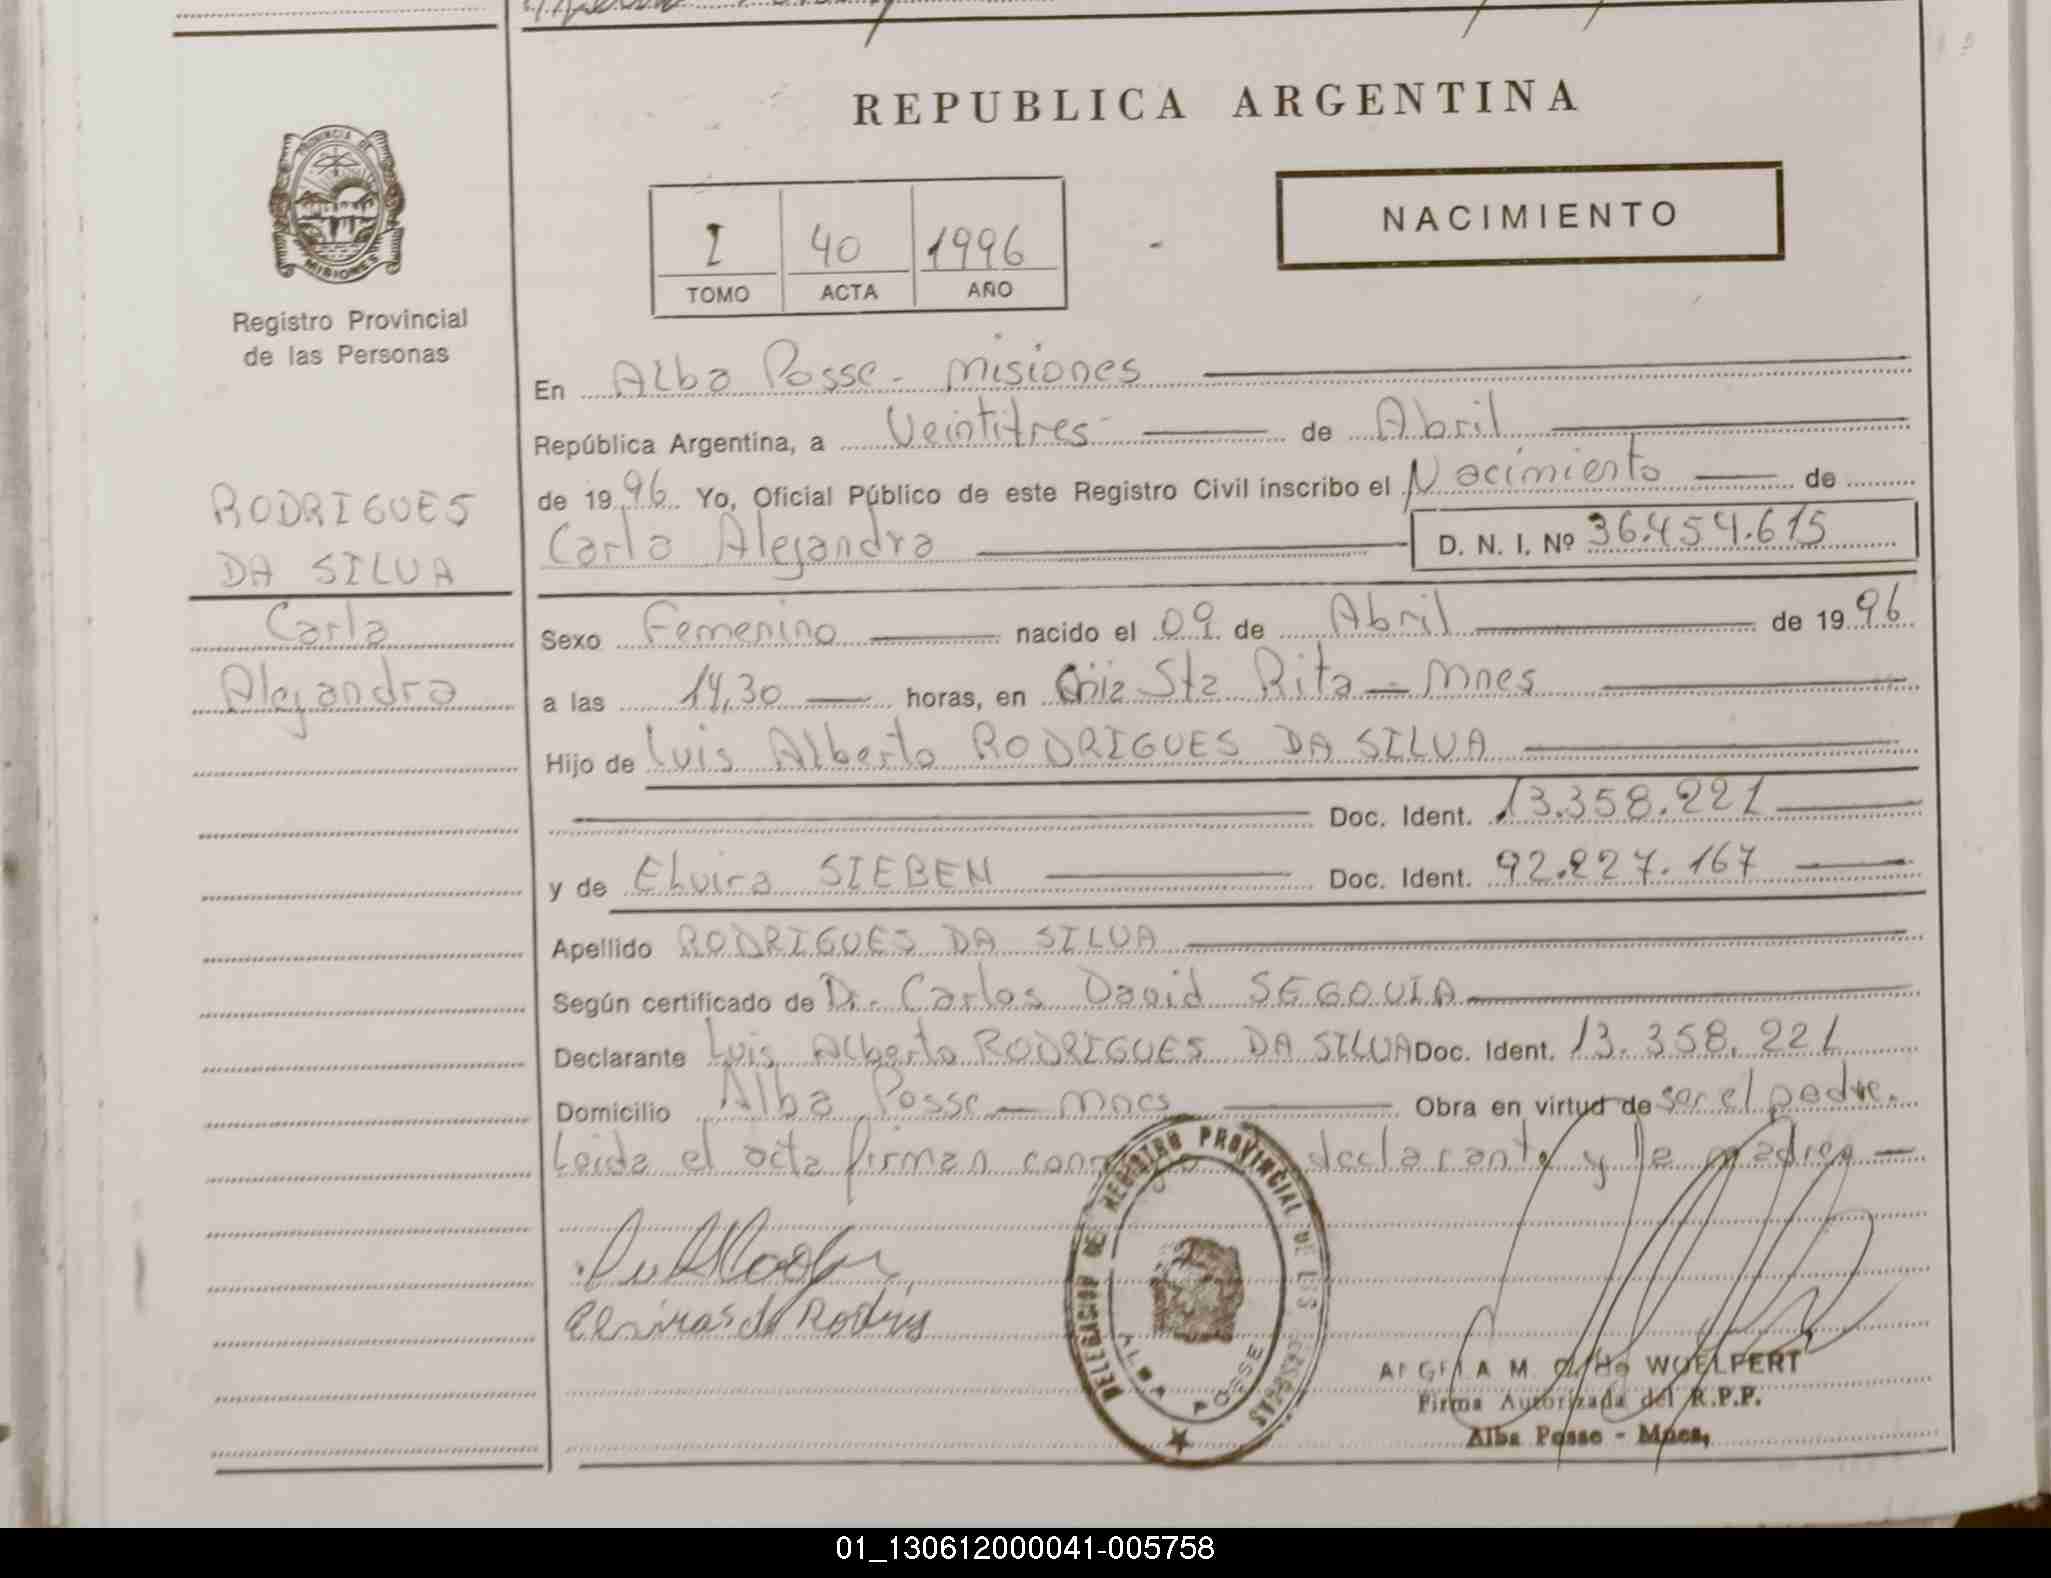 REPUBLICA ARGENTINA
PROVINCIA DE
MISIONES
Registro Provincial
de las Personas
I 40 1996
TOMO ACTA AÑO
NACIMIENTO
En Alba Posse - Misiones
República Argentina, a Veintitres de Abril
de 1996 Yo, Oficial Público de este Registro Civil inscribo el Nacimiento de
Carla Alejandra D. N. I. Nº 36.454.615
RODRIGUES
DA SILVA
Carla
Alejandra
Sexo Femenino nacido el 09 de Abril de 1996
a las 14,30 horas, en Cnia Sta Rita - Mnes
Hijo de Luis Alberto RODRIGUES DA SILVA
Doc. Ident. 13.358.221
y de Elvira SIEBEN Doc. Ident. 92.227.167
Apellido RODRIGUES DA SILVA
Según certificado de Dr. Carlos David SEGOVIA
Declarante Luis Alberto RODRIGUES DA SILVA Doc. Ident. 13.358.221
Domicilio Alba Posse - Mnes Obra en virtud de ser el padre.
Leida el acta firman declarante y la madre
DELEGACION DE REGISTRO PROVINCIAL DE LAS PERSONAS
ALBA POSSE
M. de WOELFERT
Firma Autorizada del R.P.P.
Alba Posse - Mnes,
01_130612000041-005758